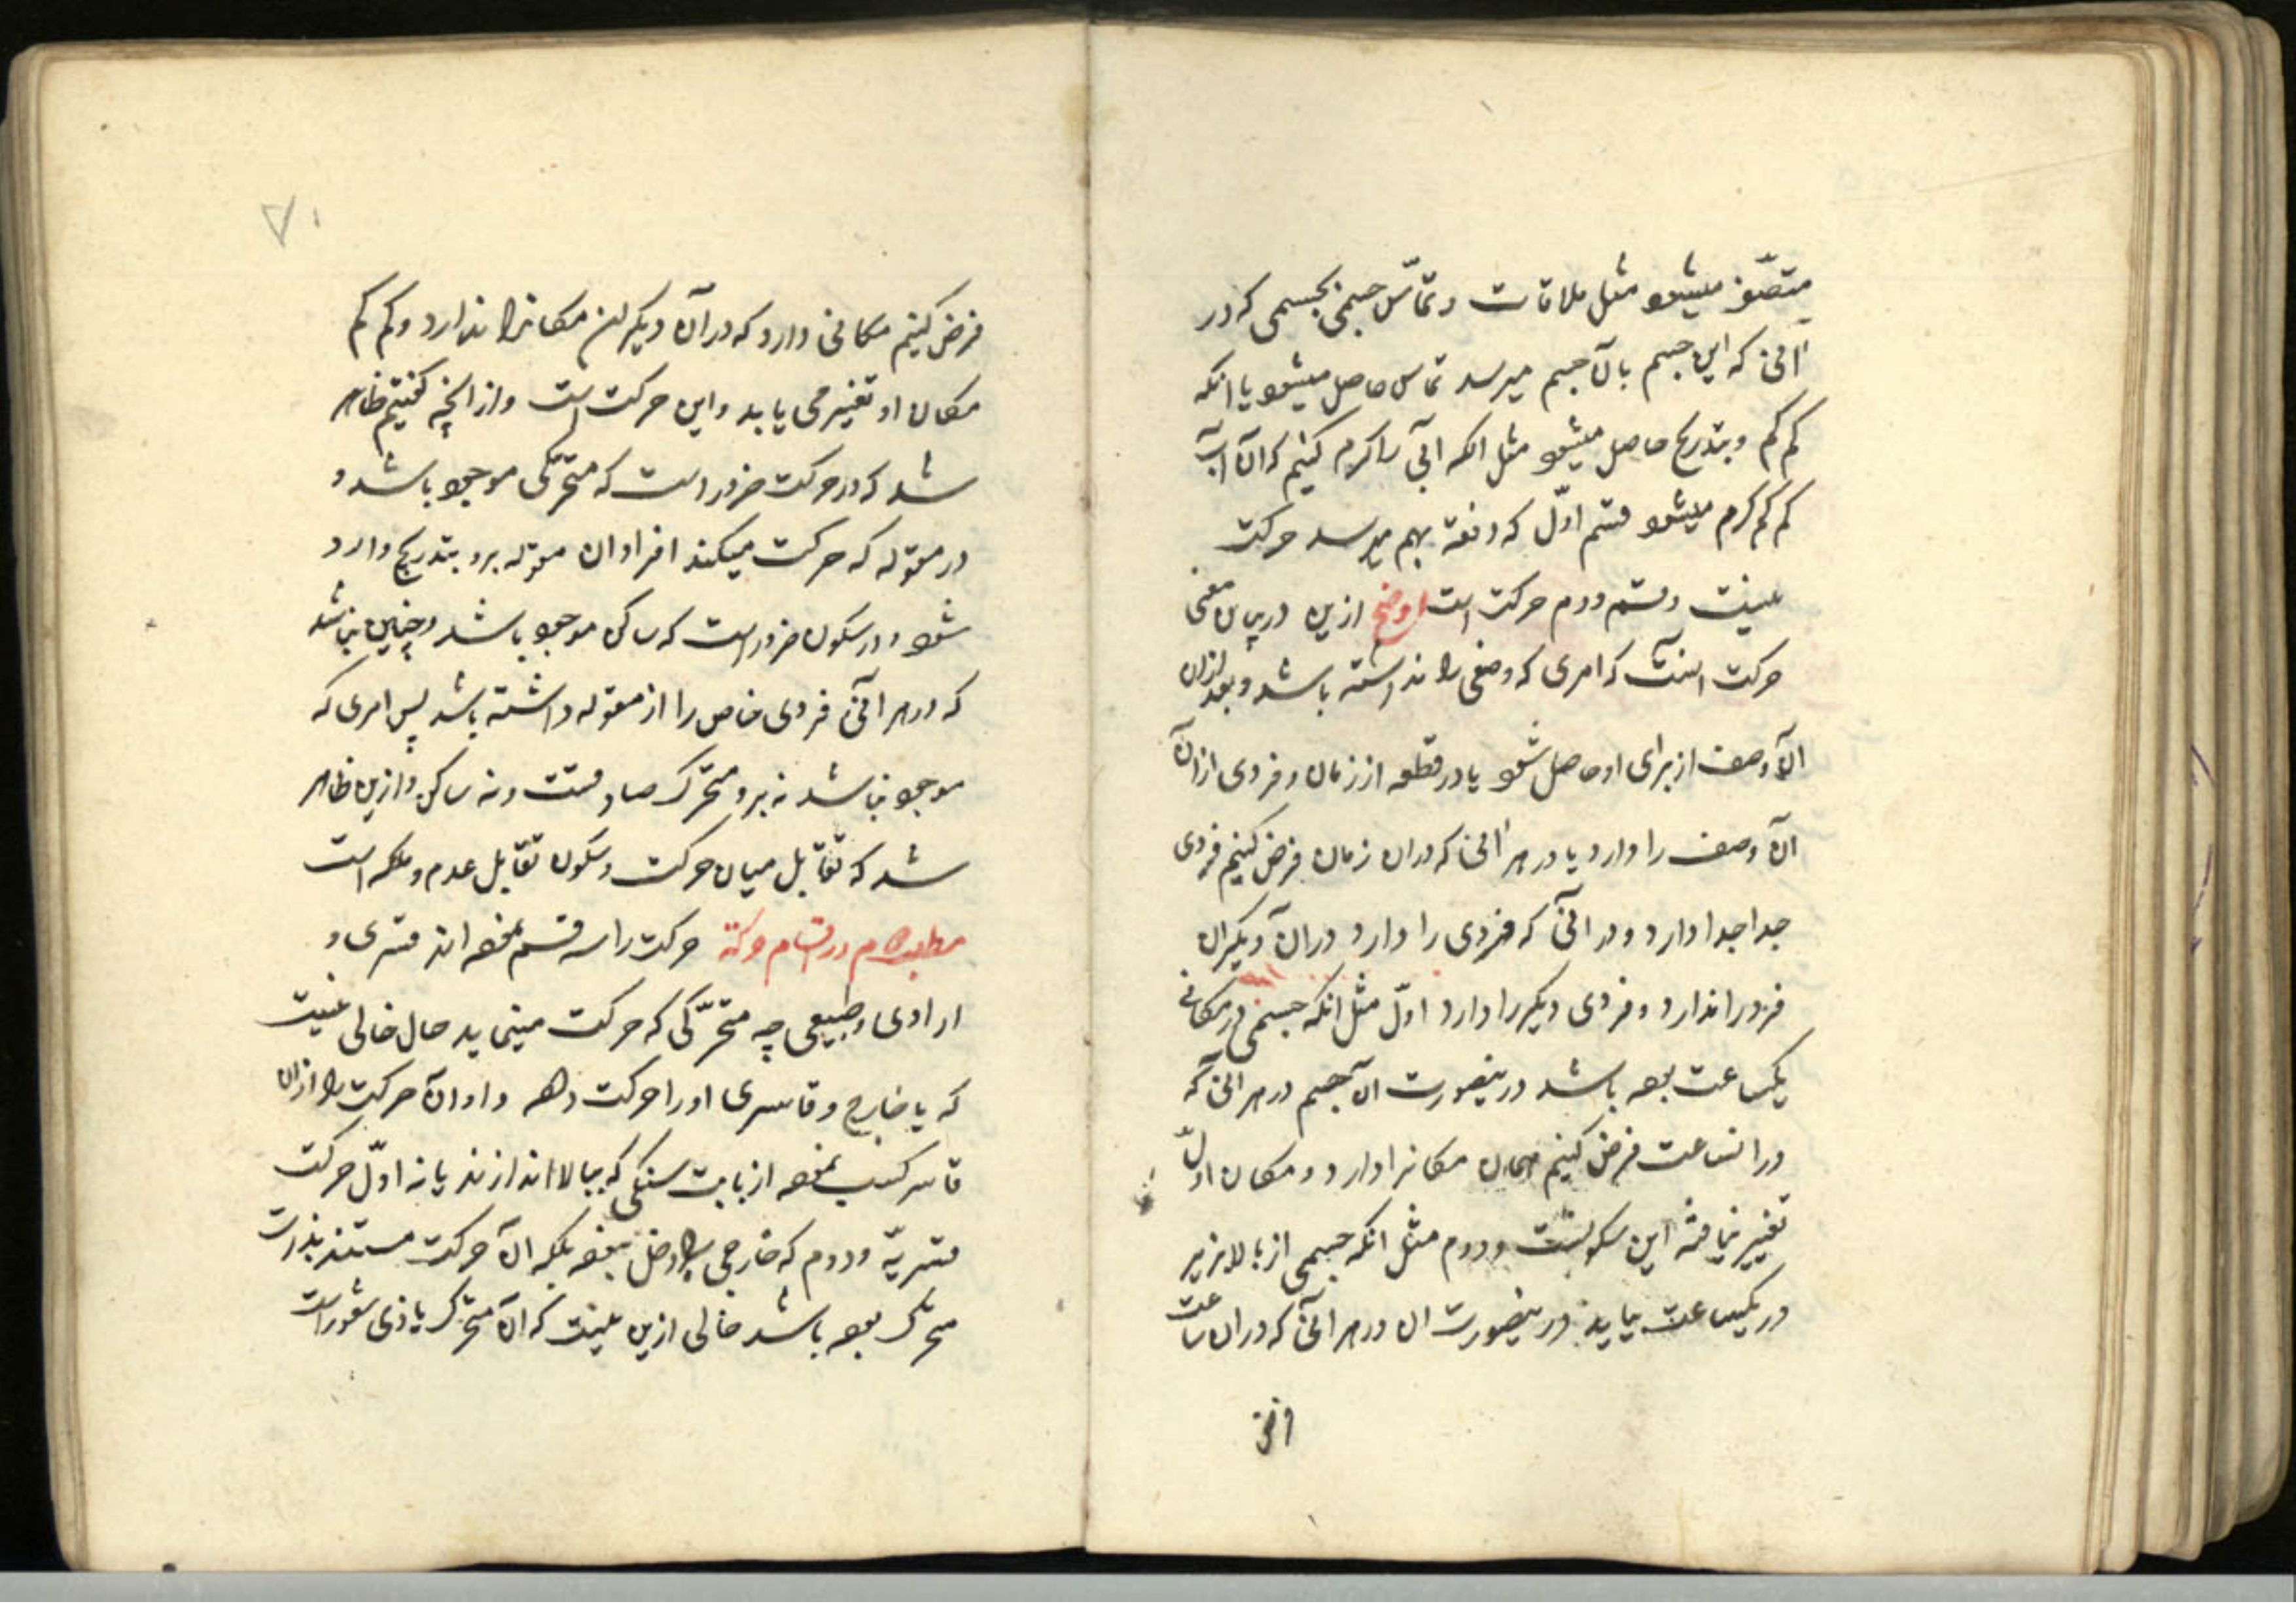 متصف میشود مثل ملاقات و تماس جسمی بجسمی که در
آنی که این جسم بآن جسم میرسد تماس حاصل میشود یا انکه
کم کم و بتدریج حاصل میشود مثل انکه آبی را کرم کنیم که آن آب
کم کم کرم میشود قسم اوّل که دفعة بهم میرسد حرکت
نیست و قسم دوم حرکت است اوضح ازین در بیان معنی
حرکت اینست که امری که وصفی را نداشته باشد و بعد ازان
آن وصف از برای او حاصل شود یا در قطعه از زمان فردی ازان
آن وصف را دارد یا در هر آنی که دران زمان فرض کنیم فردی
جدا جدا دارد و در آنی که فردی را دارد دران دیکر ان
فرد را ندارد و فردی دیکر را دارد اوّل مثل انکه جسمی در مکانی
یکساعت بوده باشد درینصورت آن جسم در هر آنی که
در انساعت فرض کنیم همان مکانرا دارد و مکان اوّل
تغییر نیافته این سکونست و دوم مثل انکه جسمی از بالا بزیر
در یکساعت بیاید درینصورت ان در هر آنی که دران ساعت
فرض
۷۰
فرض کنیم مکانی دارد که در آن دیکر ان مکانرا ندارد و کم کم
مکان او تغییر می یابد و این حرکت است و از آنچه کفتیم ظاهر
شد که در حرکت ضرور است که متحرّکی موجود باشد و
در مقوله که حرکت میکند افراد ان مقوله برو بتدریج وارد
شود و در سکون ضرور است که ساکن موجود باشد و چنین نباشد
که در هر آنی فردی خاص را از مقوله داشته باشد پس امری که
موجود نباشد نه برو متحرک صادقست و نه ساکن و ازین ظاهر
شد که تقابل میان حرکت و سکون تقابل عدم و ملکه است
مطلب دوم در اقسام حرکة حرکت را سه قسم نموده اند قسری و
ارادی و طبیعی چه متحرّکی که حرکت مینماید حال خالی نیست
که یا خارج و قاسری اورا حرکت دهد و او آن حرکت را ازان
قاسر کسب نموده از بابت سنکی که ببالا اندازند یا نه اوّل حرکت
قسریّه و دوم که خارجی را دخل نبوده بلکه آن حرکت مستند بذات
متحرک بوده باشد خالی ازین نیست که آن متحرک یا ذی شعور است